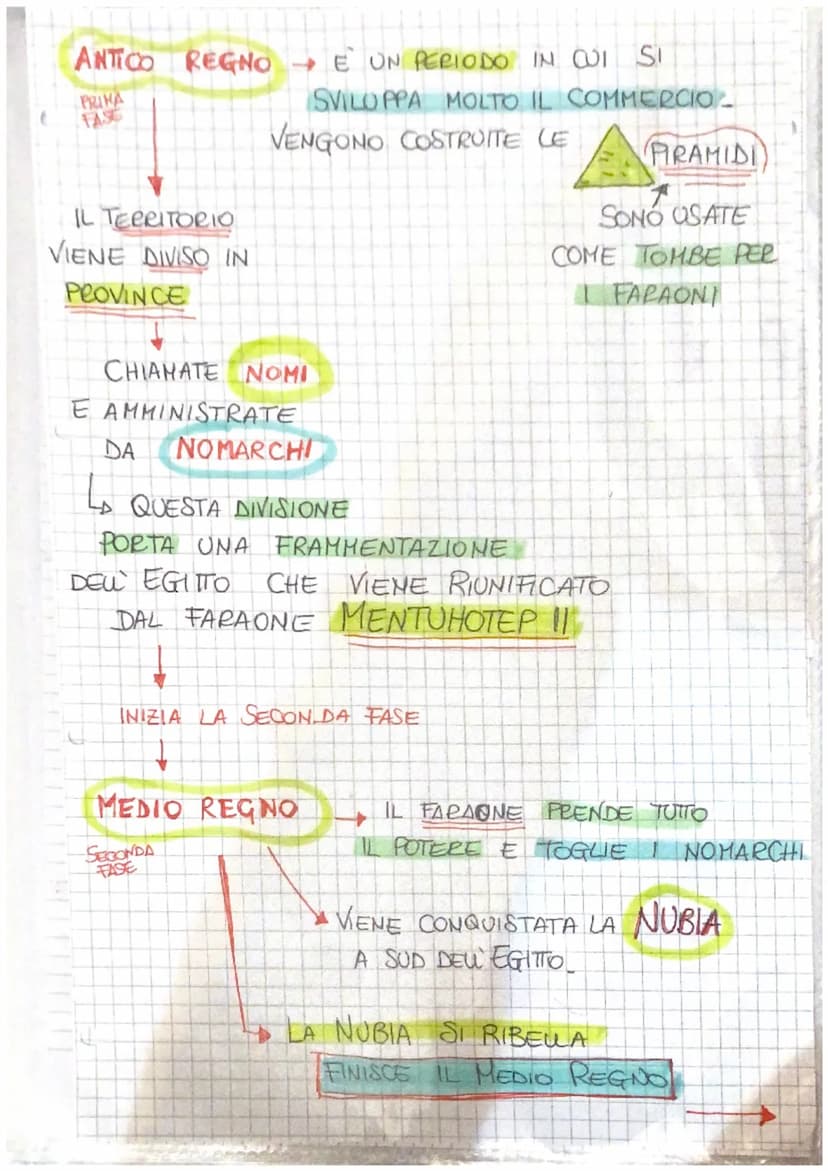 ANTICO REGNO → E' UN PERIODO IN CUI SI
PRIMA
FASE
SVILUPPA MOLTO IL COMMERCIO.
VENGONO COSTRUITE LE PIRAMIDI
SONO USATE
COME TOMBE PER
I FARAONI
IL TERRITORIO
VIENE DIVISO IN
PROVINCE
CHIAMATE NOMI
E AMMINISTRATE
DA NOMARCHI
↳ QUESTA DIVISIONE
PORTA UNA FRAMMENTAZIONE
DELL'EGITTO CHE VIENE RIUNIFICATO
DAL FARAONE MENTUHOTEP II
INIZIA LA SECONDA FASE
MEDIO REGNO → IL FARAONE PRENDE TUTTO
SECONDA
FASE
IL POTERE E TOGLIE I NOMARCHI
VIENE CONQUISTATA LA NUBIA
A SUD DELL'EGITTO.
LA NUBIA SI RIBELLA
FINISCE IL MEDIO REGNO